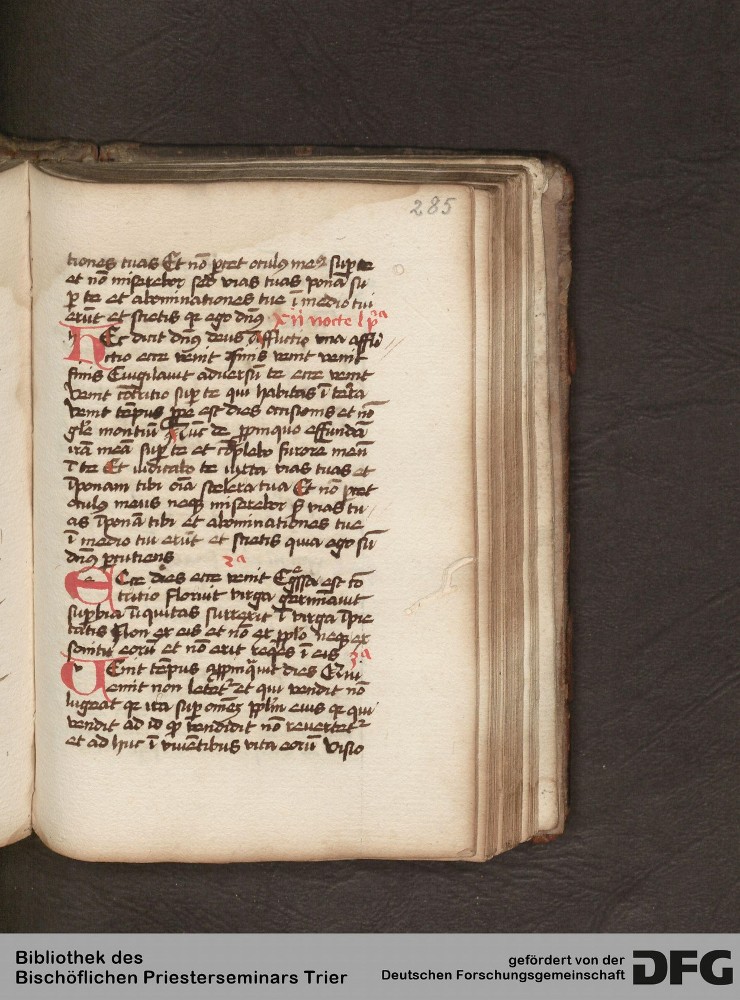 285
tiones tuas Et nō p̄cet oculꝯ meꝰ sup te
et nō miserebor sed vias tuas ponā su
ꝑ te et abominationes tue ī medio tui
erūt et scietis qꝛ ego dn̄s xii nocte l pᵃ
HEc dicit dn̄s deus Afflictio vna afflic
ctio ecce venit finis venit venit
finis Euigilauit aduersū te ecce venit
venit cōtritio sup te qui habitas ī terra
venit tēpus ꝓpe est dies occisionis et nō
gl̄e montiū Nūc de ꝓpinquo effundā
irā meā sup te et cōplebo furorē meū
ī te Et iudicabo te iuxta vias tuas et
īponam tibi oīa scelera tua Et nō p̄cet
oculꝯ meus neqꝫ miserebor sꝫ vias tu
as īponā tibi et abominationes tue
ī medio tui erūt et scietis quia ego sū
dn̄s ꝑcutiens 2ᵃ
ECce dies ecce venit Egressa est cō
tritio floruit virga germīauit
supbia īiquitas surrexit ī virga īpie
tatis Non ex eis et nō ex pplo neqꝫ ex
sonitu eorū et non erit reqes ī eis 3ᵃ
VEnit tēpus appīquauit dies Qui
emit non letetᷣ et qui vendit nō
lugeat qꝛ ira sup omēꝫ pplm eius qꝛ qui
vendit ad id qđ vendidit nō reuertetᷣ
et ad huc ī viuētibus vita eorū visio
Bibliothek des
Bischöflichen Priesterseminars Trier
gefördert von der
Deutschen Forschungsgemeinschaft
DFG